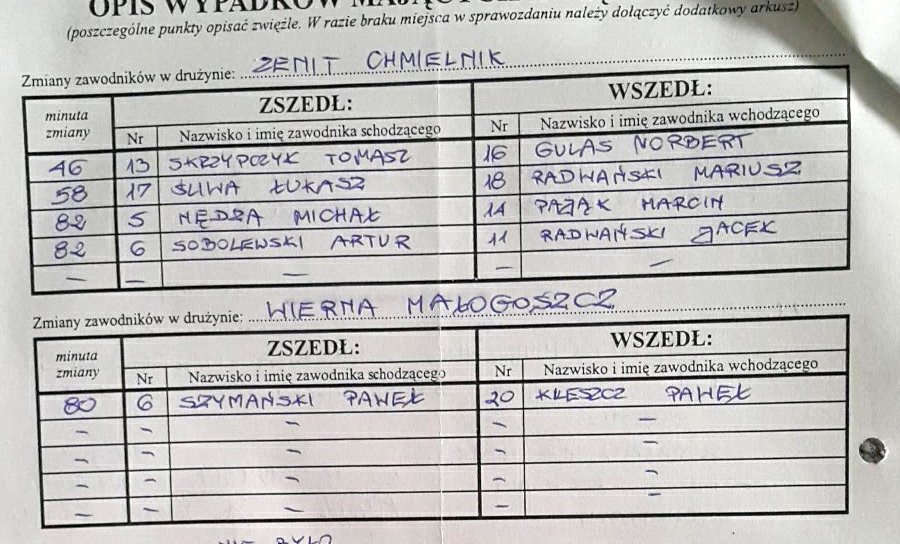 OPIS WYPADKÓW
(poszczególne punkty opisać zwięźle. W razie braku miejsca w sprawozdaniu należy dołączyć dodatkowy arkusz)
Zmiany zawodników w drużynie: ZENIT CHMIELNIK
minuta zmiany ZSZEDŁ: WSZEDŁ:
Nr Nazwisko i imię zawodnika schodzącego Nr Nazwisko i imię zawodnika wchodzącego
46 13 SKRZYPCZYK TOMASZ 16 GULAS NORBERT
58 17 ŚLIWA ŁUKASZ 18 RADWAŃSKI MARIUSZ
82 5 NĘDZA MICHAŁ 14 PAJĄK MARCIN
82 6 SOBOLEWSKI ARTUR 11 RADWAŃSKI JACEK
– – – – –
Zmiany zawodników w drużynie: WIERNA MAŁOGOSZCZ
minuta zmiany ZSZEDŁ: WSZEDŁ:
Nr Nazwisko i imię zawodnika schodzącego Nr Nazwisko i imię zawodnika wchodzącego
80 6 SZYMAŃSKI PAWEŁ 20 KLESZCZ PAWEŁ
– – – – –
– – – – –
– – – – –
– – – – –